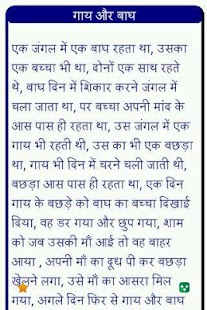 गाय और बाघ
एक जंगल में एक बाघ रहता था, उसका
एक बच्चा भी था, दोनों एक साथ रहते
थे, बाघ दिन में शिकार करने जंगल में
चला जाता था, पर बच्चा अपनी मांद के
आस पास ही रहता था, उस जंगल में एक
गाय भी रहती थी, उस का भी एक बछड़ा
था, गाय भी दिन में चरने चली जाती थी,
बछड़ा आस पास ही रहता था, एक दिन
गाय के बछड़े को बाघ का बच्चा दिखाई
दिया, वह डर गया और छुप गया, शाम
को जब उसकी माँ आई तो वह बाहर
आया , अपनी माँ का दूध पी कर बछड़ा
खेलने लगा, उसे माँ का आसरा मिल
गया, अगले दिन फिर से गाय और बाघ